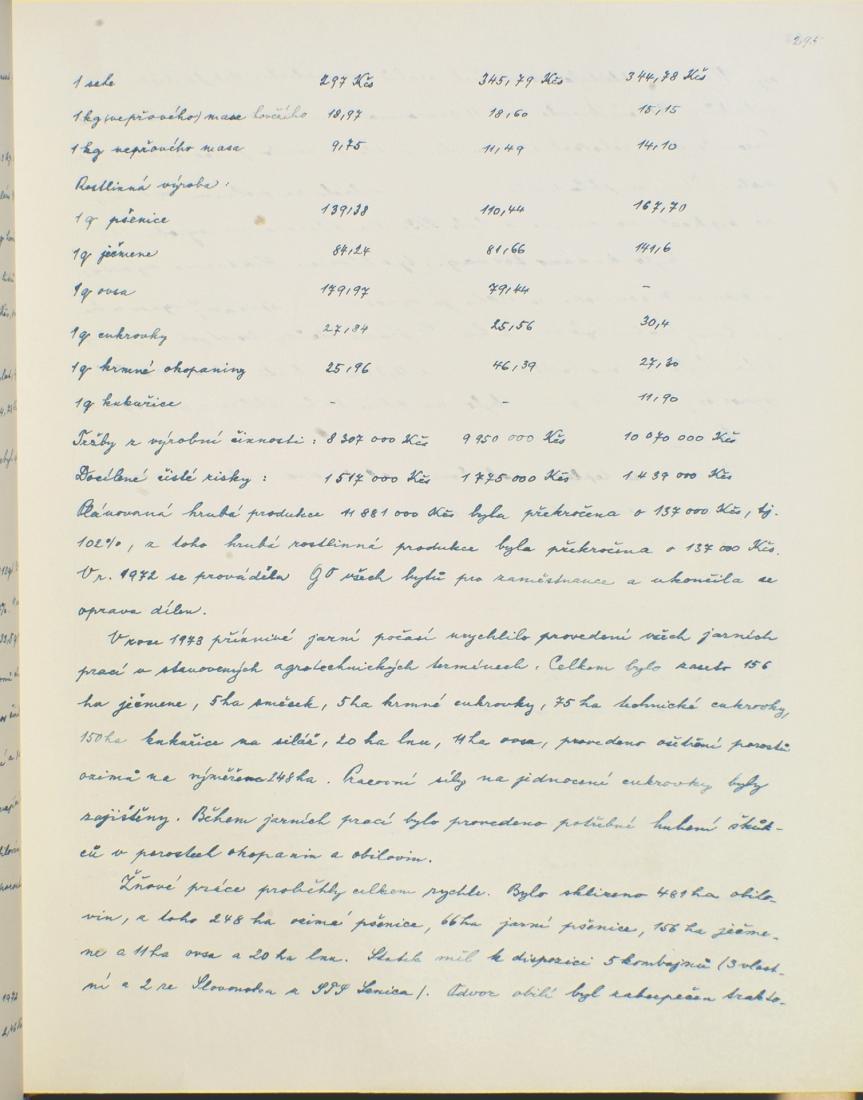 295
1 sele 297 Kčs 345,79 Kčs 344,78 Kčs
1 kg (vepřového) masa hovězího 18,97 18,60 15,15
1 kg vepřového masa 9,75 11,49 14,10
Rostlinná výroba:
1 q pšenice 139,38 110,44 167,70
1 q ječmene 84,24 81,66 141,6
1 q ovsa 179,97 79,44 -
1 q cukrovky 27,84 25,56 30,4
1 q krmné okopaniny 25,96 46,39 27,30
1 q kukuřice - - 11,90
Tržby z výrobní činnosti: 8 307 000 Kčs 9 950 000 Kčs 10 070 000 Kčs
Docílené čisté zisky: 1 517 000 Kčs 1 775 000 Kčs 1 439 000 Kčs
Plánovaná hrubá produkce 11 881 000 Kčs byla překročena o 137 000 Kčs, tj.
102%, z toho hrubá rostlinná produkce byla překročena o 137 000 Kčs.
V r. 1972 se prováděla GO všech bytů pro zaměstnance a ukončila se
oprava dílen.
V roce 1973 příznivé jarní počasí urychlilo provedení všech jarních
prací v stanovených agrotechnických termínech. Celkem bylo zaseto 156
ha ječmene, 5 ha směsek, 5 ha krmné cukrovky, 75 ha technické cukrovky,
150 ha kukuřice na siláž, 20 ha lnu, 11 ha ovsa, provedeno ošetření porostů
ozimů na výměřene 248 ha. Pracovní síly na jednocení cukrovky byly
zajištěny. Během jarních prací bylo provedeno potřebné hubení škůd-
ců v porostech okopanin a obilovin.
Žňové práce proběhly celkem rychle. Bylo sklizeno 481 ha obilo-
vin, z toho 248 ha ozimé pšenice, 66 ha jarní pšenice, 156 ha ječme-
ne a 11 ha ovsa a 20 ha lnu. Statek měl k dispozici 5 kombajnů (3 vlast-
ní a 2 ze Slovenska z STS Senica). Odvoz obilí byl zabezpečen trakto-